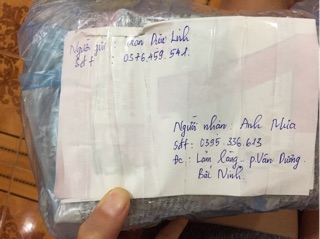 Người gửi : Trần Đức Linh
Sđt : 0376.459.541.
Người nhận: Anh Nhia
Sđt: 0395 336.613
Đc : Lãm làng - p.Vân Dương.
Bắc Ninh.